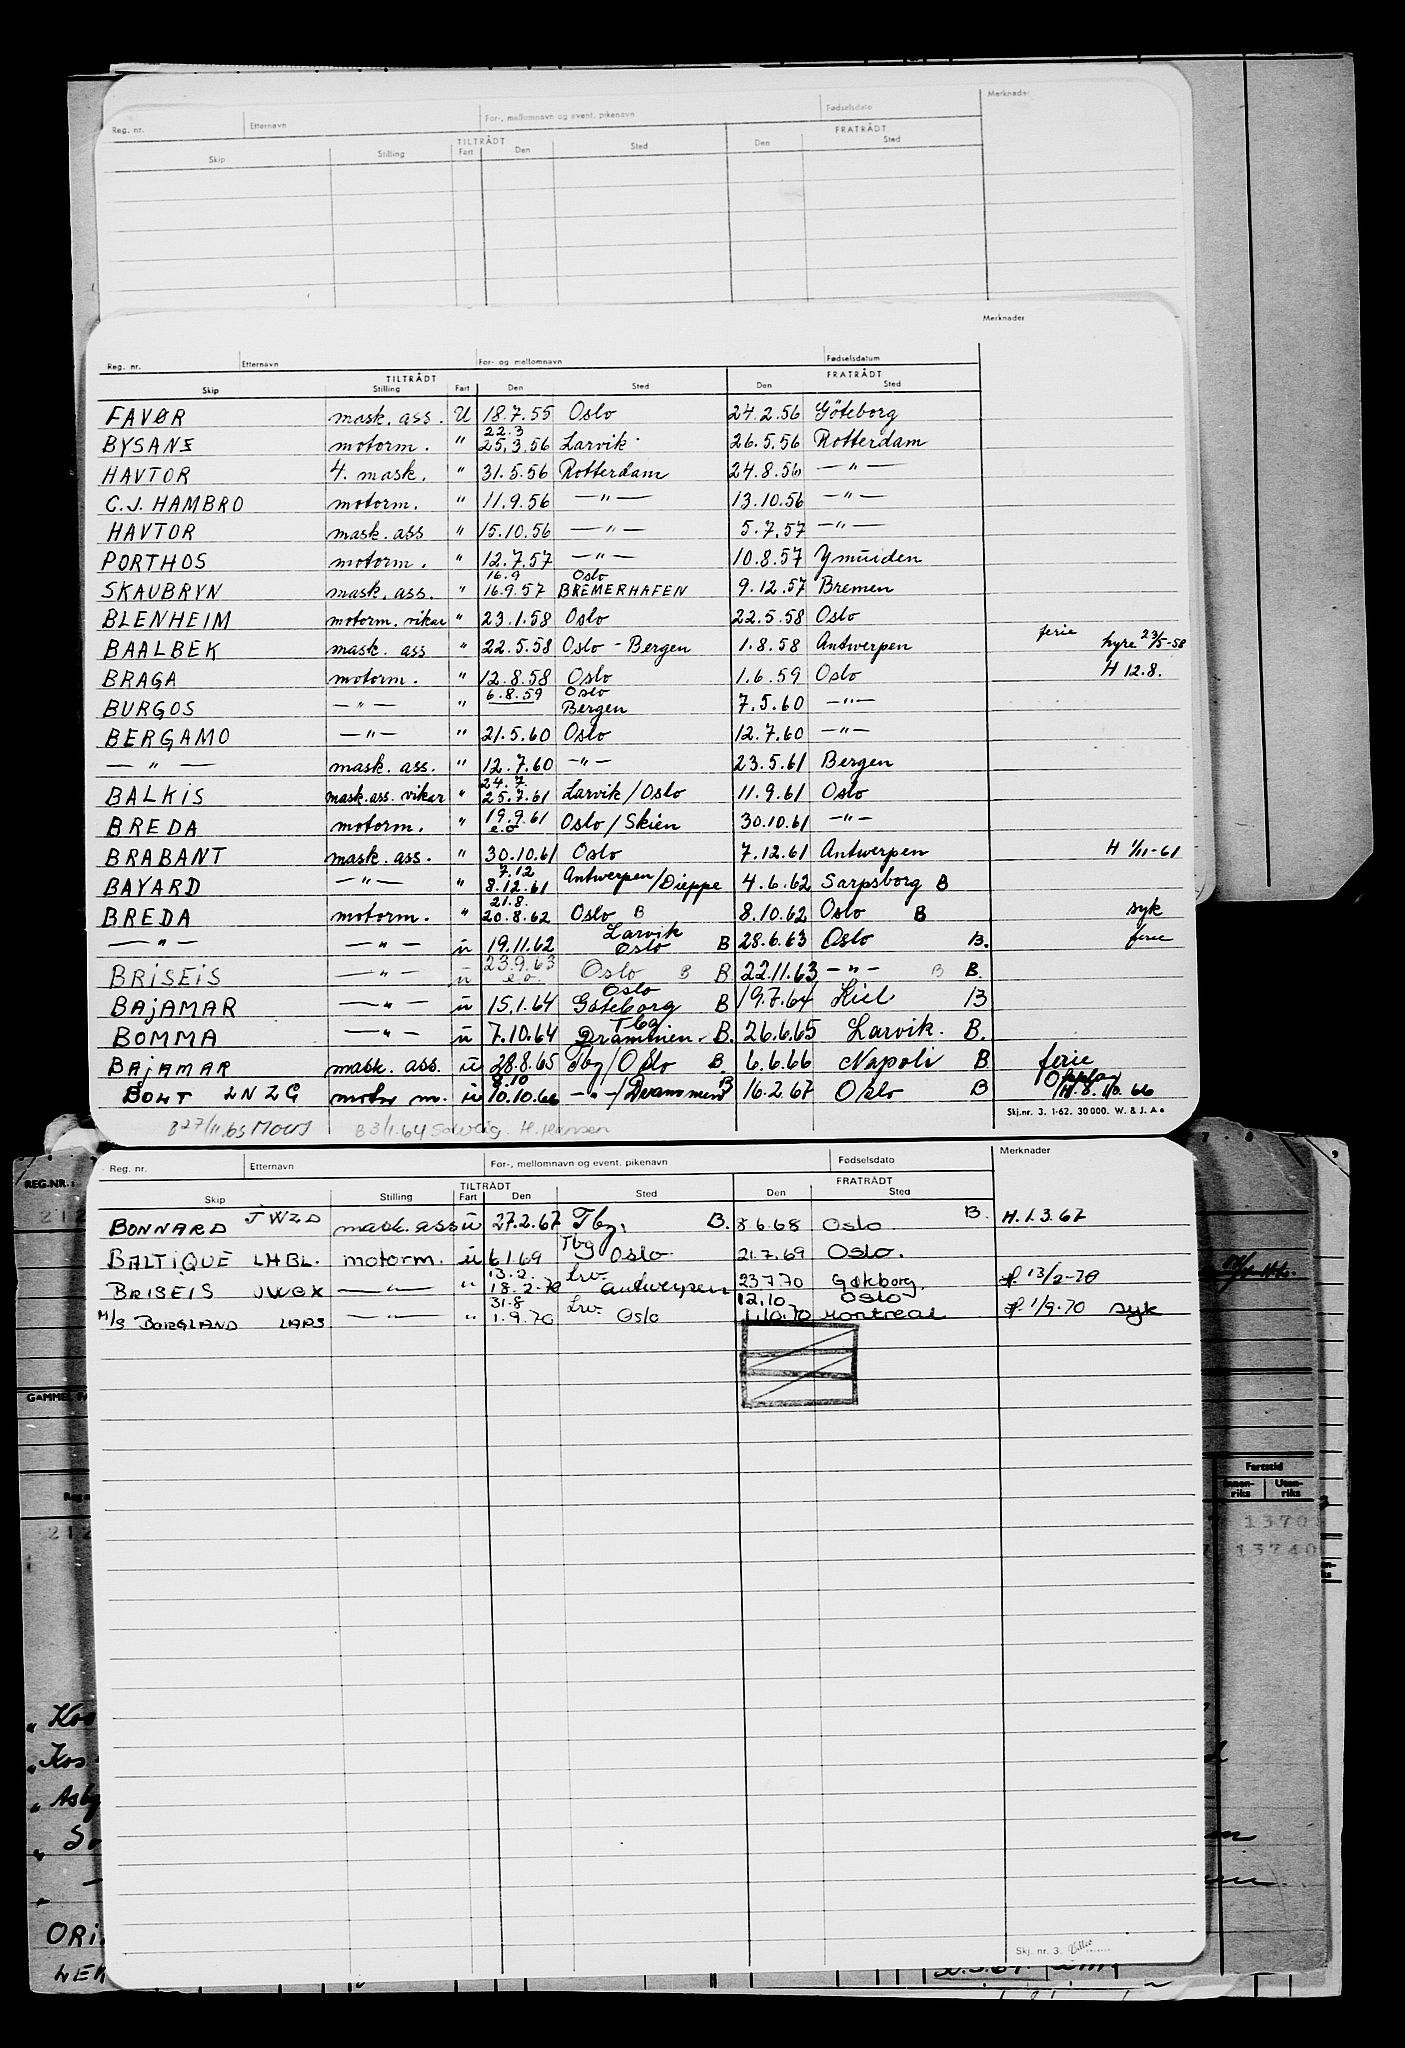 Merknader
Reg. nr. Etternavn For-, mellomnavn og event. pikenavn Fødselsdato
TILTRÅDT FRATRÅDT
Skip Stilling Fart Den Sted Den Sted
Merknader
Reg. nr. Etternavn For- og mellomnavn Fødselsdatum
TILTRÅDT FRATRÅDT
Skip Stilling Fart Den Sted Den Sted
FAVØR mask. ass. U 18.7.55 Oslo 24.2.56 Göteborg
22.3
BYSANZ motorm. " 25.3.56 Larvik 26.5.56 Rotterdam
HAVTOR 4. mask. " 31.5.56 Rotterdam 24.8.56 —"—
C.J. HAMBRO motorm. " 11.9.56 —"— 13.10.56 —"—
HAVTOR mask. ass " 15.10.56 —"— 5.7.57 —"—
PORTHOS motorm. " 12.7.57 —"— 10.8.57 Ymuiden
16.9 Oslo
SKAUBRYN mask. ass. " 16.9.57 BREMERHAFEN 9.12.57 Bremen
BLENHEIM motorm. vikar " 23.1.58 Oslo 22.5.58 Oslo
BAALBEK mask. ass " 22.5.58 Oslo - Bergen 1.8.58 Antwerpen ferie hyre 23/5-58
BRAGA motorm. " 12.8.58 Oslo 1.6.59 Oslo H 12.8.
6.8.59 Oslo
BURGOS —"— " Bergen 7.5.60 —"—
BERGAMO —"— " 21.5.60 Oslo 12.7.60 —"—
—"— mask. ass. " 12.7.60 —"— 23.5.61 Bergen
24.7.
BALKIS mask. ass. vikar " 25.7.61 Larvik/Oslo 11.9.61 Oslo
BREDA motorm. " 19.9.61 Oslo/Skien 30.10.61 —"—
e.o
BRABANT mask. ass. " 30.10.61 Oslo 7.12.61 Antwerpen H 1/11-61
7.12
BAYARD —"— " 8.12.61 Antwerpen/Dieppe 4.6.62 Sarpsborg B
21.8.
BREDA motorm. " 20.8.62 Oslo B 8.10.62 Oslo B syk
Larvik
—"— —"— u 19.11.62 Oslo B 28.6.63 Oslo B. ferie
23.9.63
BRISEIS —"— u e.o Oslo B B 22.11.63 —"— B B.
Oslo
BAJAMAR —"— u 15.1.64 Göteborg B 19.7.64 Kiel B
Tbg
BOMMA —"— u 7.10.64 Drammen. B. 26.6.65 Larvik. B.
BAJAMAR mask. ass. u 28.8.65 Tbg/Oslo B. 6.6.66 Napoli B ferie
8.10
BOLT LNZG motor m. u 10.10.66 —"—/Drammen B 16.2.67 Oslo B H. 8. 10. 66
Skj.nr. 3. 1-62. 30000. W. & J. A.s
B 3/1.64 Solveig. H. Hansen
Merknader
Reg. nr. Etternavn For-, mellomnavn og event. pikenavn Fødselsdato
TILTRÅDT FRATRÅDT
Skip Stilling Fart Den Sted Den Sted
BONNARD JWZD mask. ass u 27.2.67 Tbg. B. 8.6.68 Oslo B. H. 1.3.67
BALTIQUE LHBL. motorm. u 6.1.69 Tbg Oslo. 21.7.69 Oslo.
13.2. Lrv.
BRISEIS JWGX —"— " 18.2.70 Antwerpen 23.7.70 Gøteborg H 13/2-70
31.8 Lrv. 12.10 Oslo
M/S BORGLAND LAPS —"— " 1.9.70 Oslo 1.10.70 Montreal H 1/9-70 syk
Skj. nr. 3.
REG.NR.:
212
Fartstid
Innen-riks Uten-riks
1370
13740
Asby
ORI